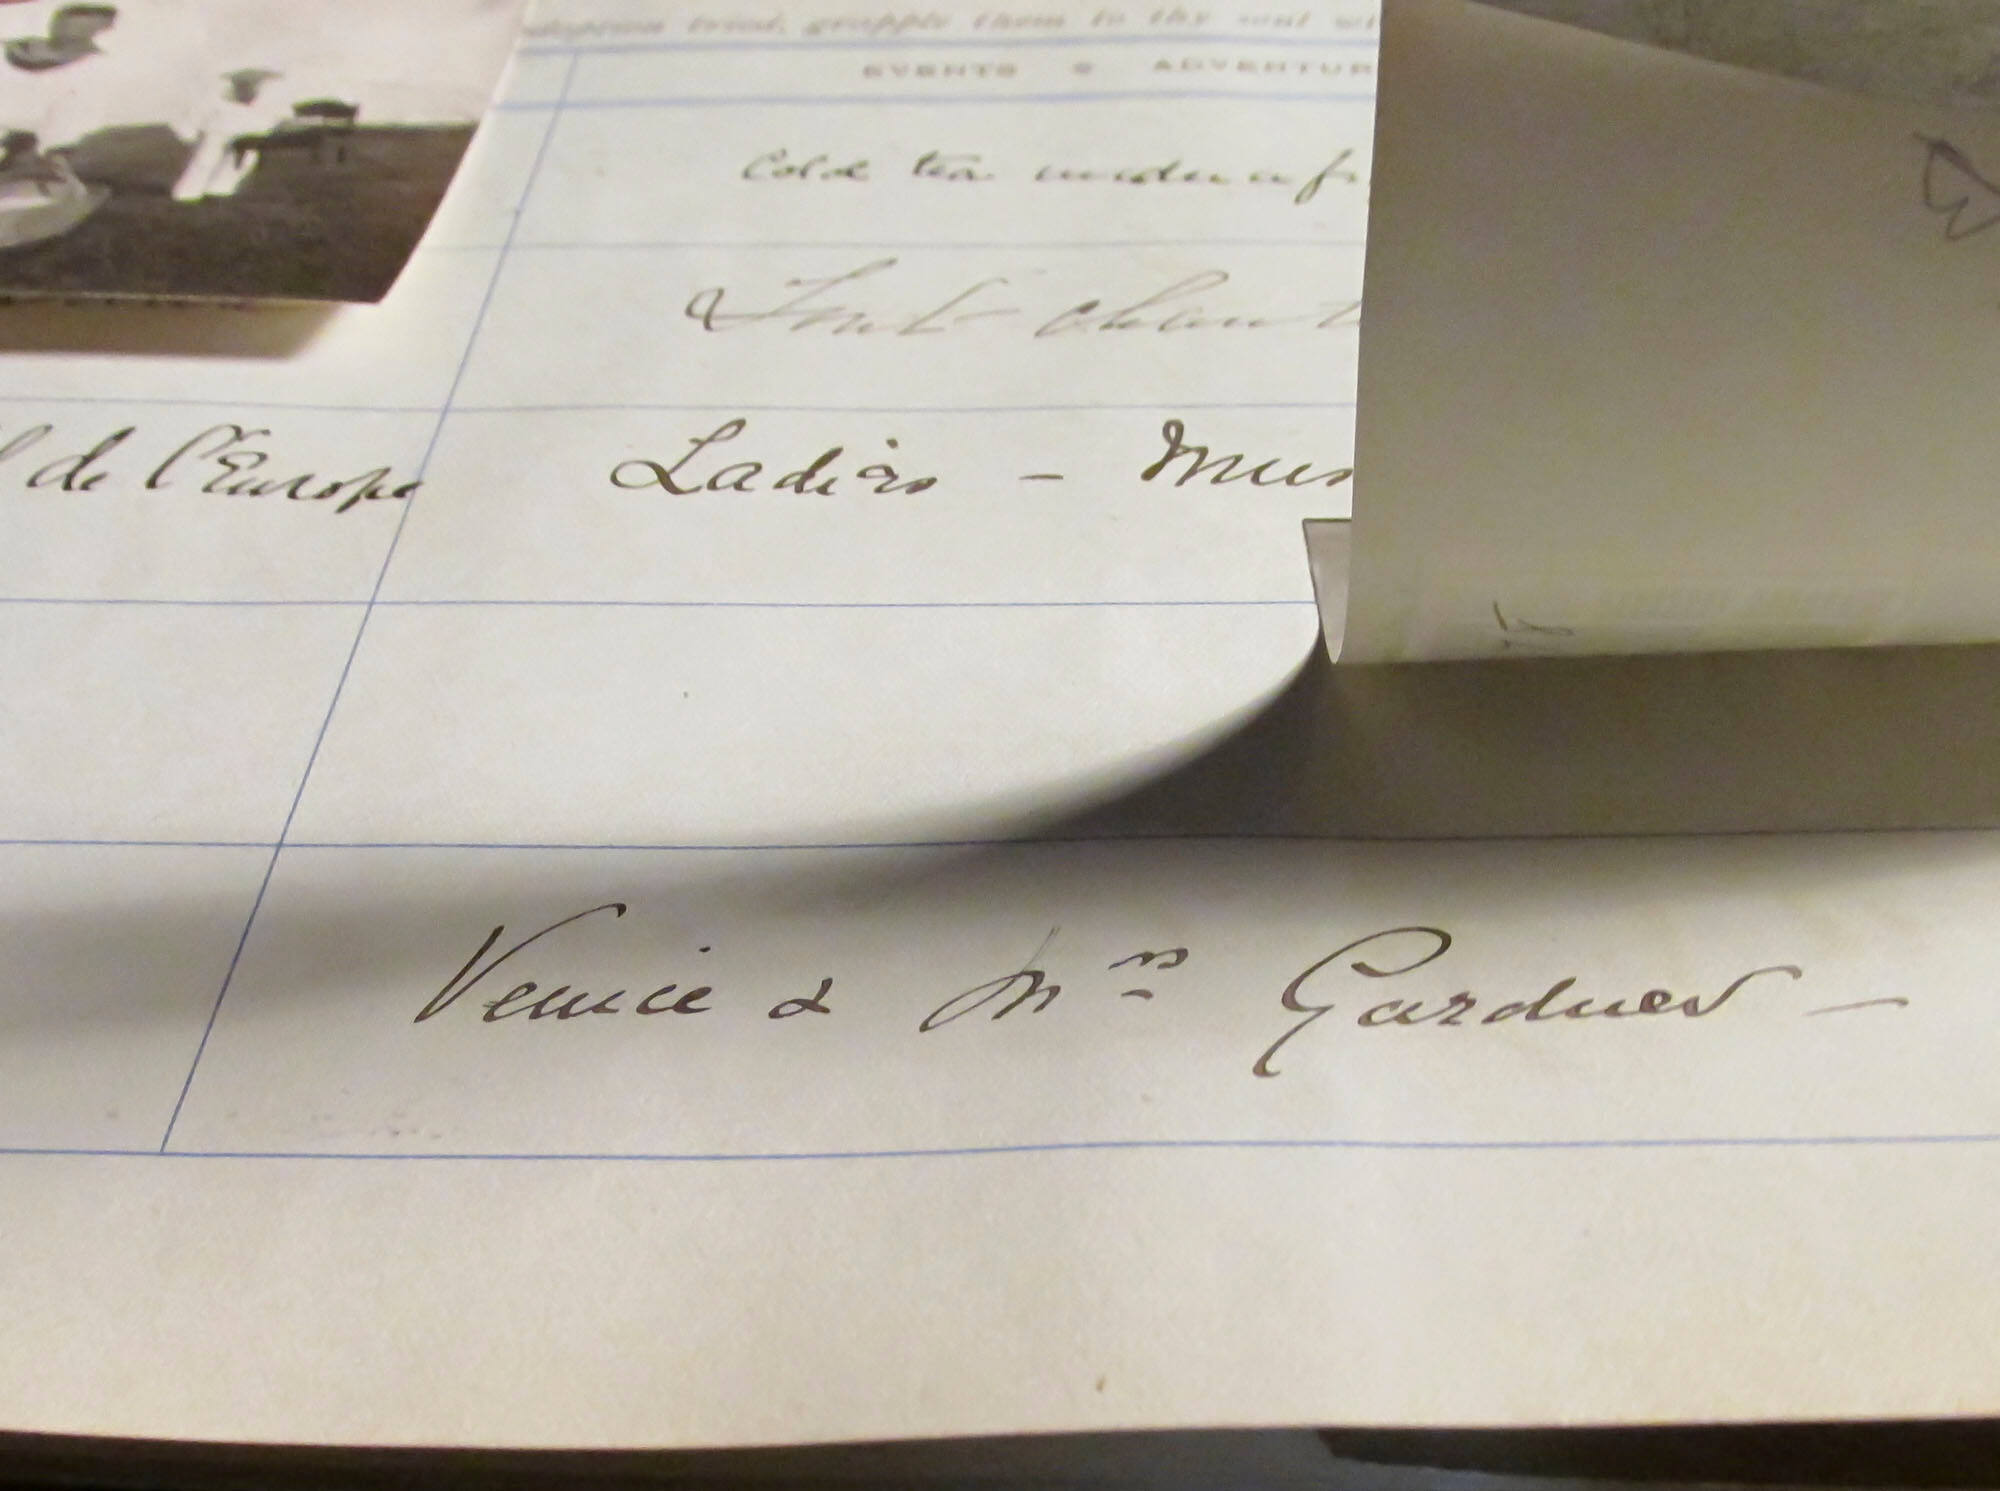 adoption tried, grapple them to thy soul wi
EVENTS & ADVENTUR
Cold tea under a fr
chant
de l'Europe
Ladies – Mus
Venice & Mrs Gardner –